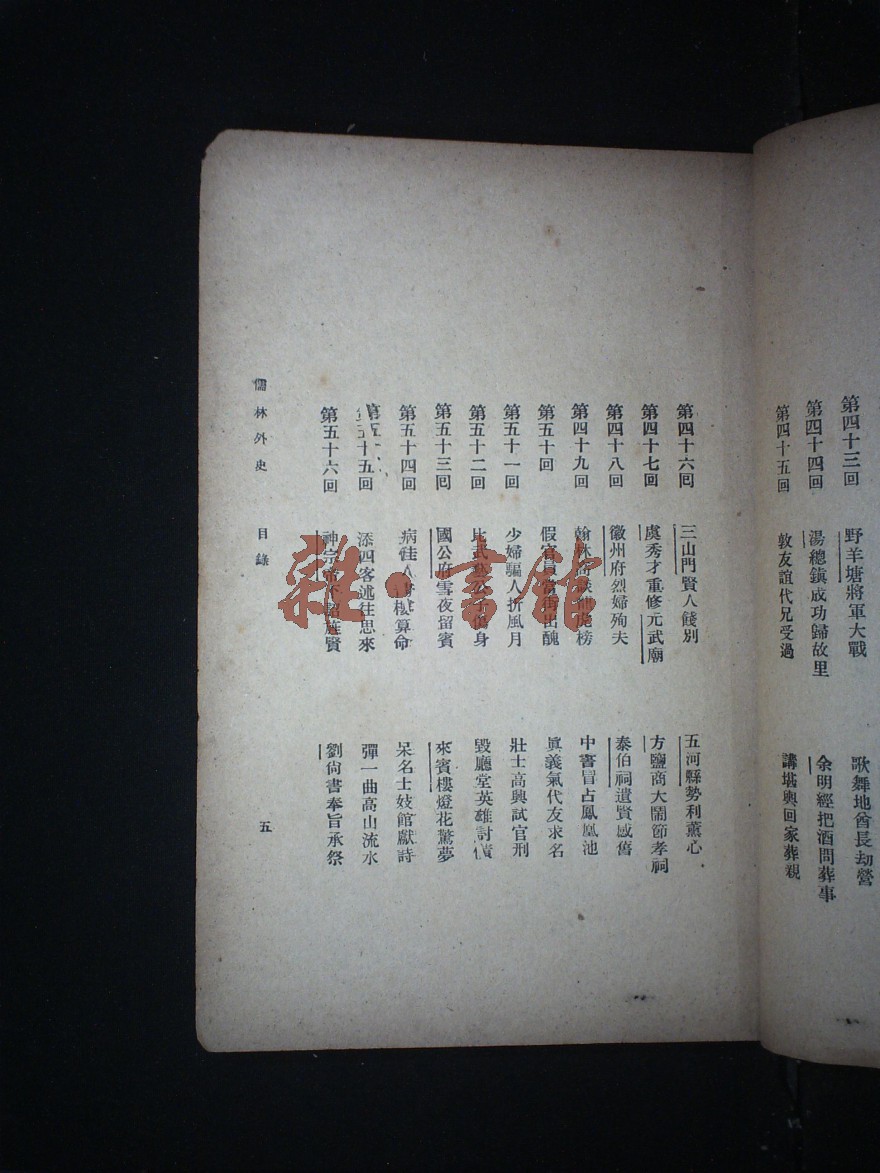 第四十三回 野羊塘將軍大戰 歌舞地酋長劫營
第四十四回 湯總鎮成功歸故里 余明經把酒問葬事
第四十五回 敦友誼代兄受過 講堪輿回家葬親
第四十六回 三山門賢人餞別 五河縣勢利薰心
第四十七回 虞秀才重修元武廟 方鹽商大鬧節孝祠
第四十八回 徽州府烈婦殉夫 泰伯祠遺賢感舊
第四十九回 翰林高談龍虎榜 中書冒占鳳凰池
第五十回 假官員當街出醜 眞義氣代友求名
第五十一回 少婦騙人折風月 壯士高興試官刑
第五十二回 比武藝公子傷身 毀廳堂英雄討債
第五十三回 國公府雪夜留賓 來賓樓燈花驚夢
第五十四回 病佳人樓算命 呆名士妓館獻詩
第五十五回 添四客述往思來 彈一曲高山流水
第五十六回 神宗帝下詔旌賢 劉尙書奉旨承祭
儒林外史 目錄 五
雜·書館